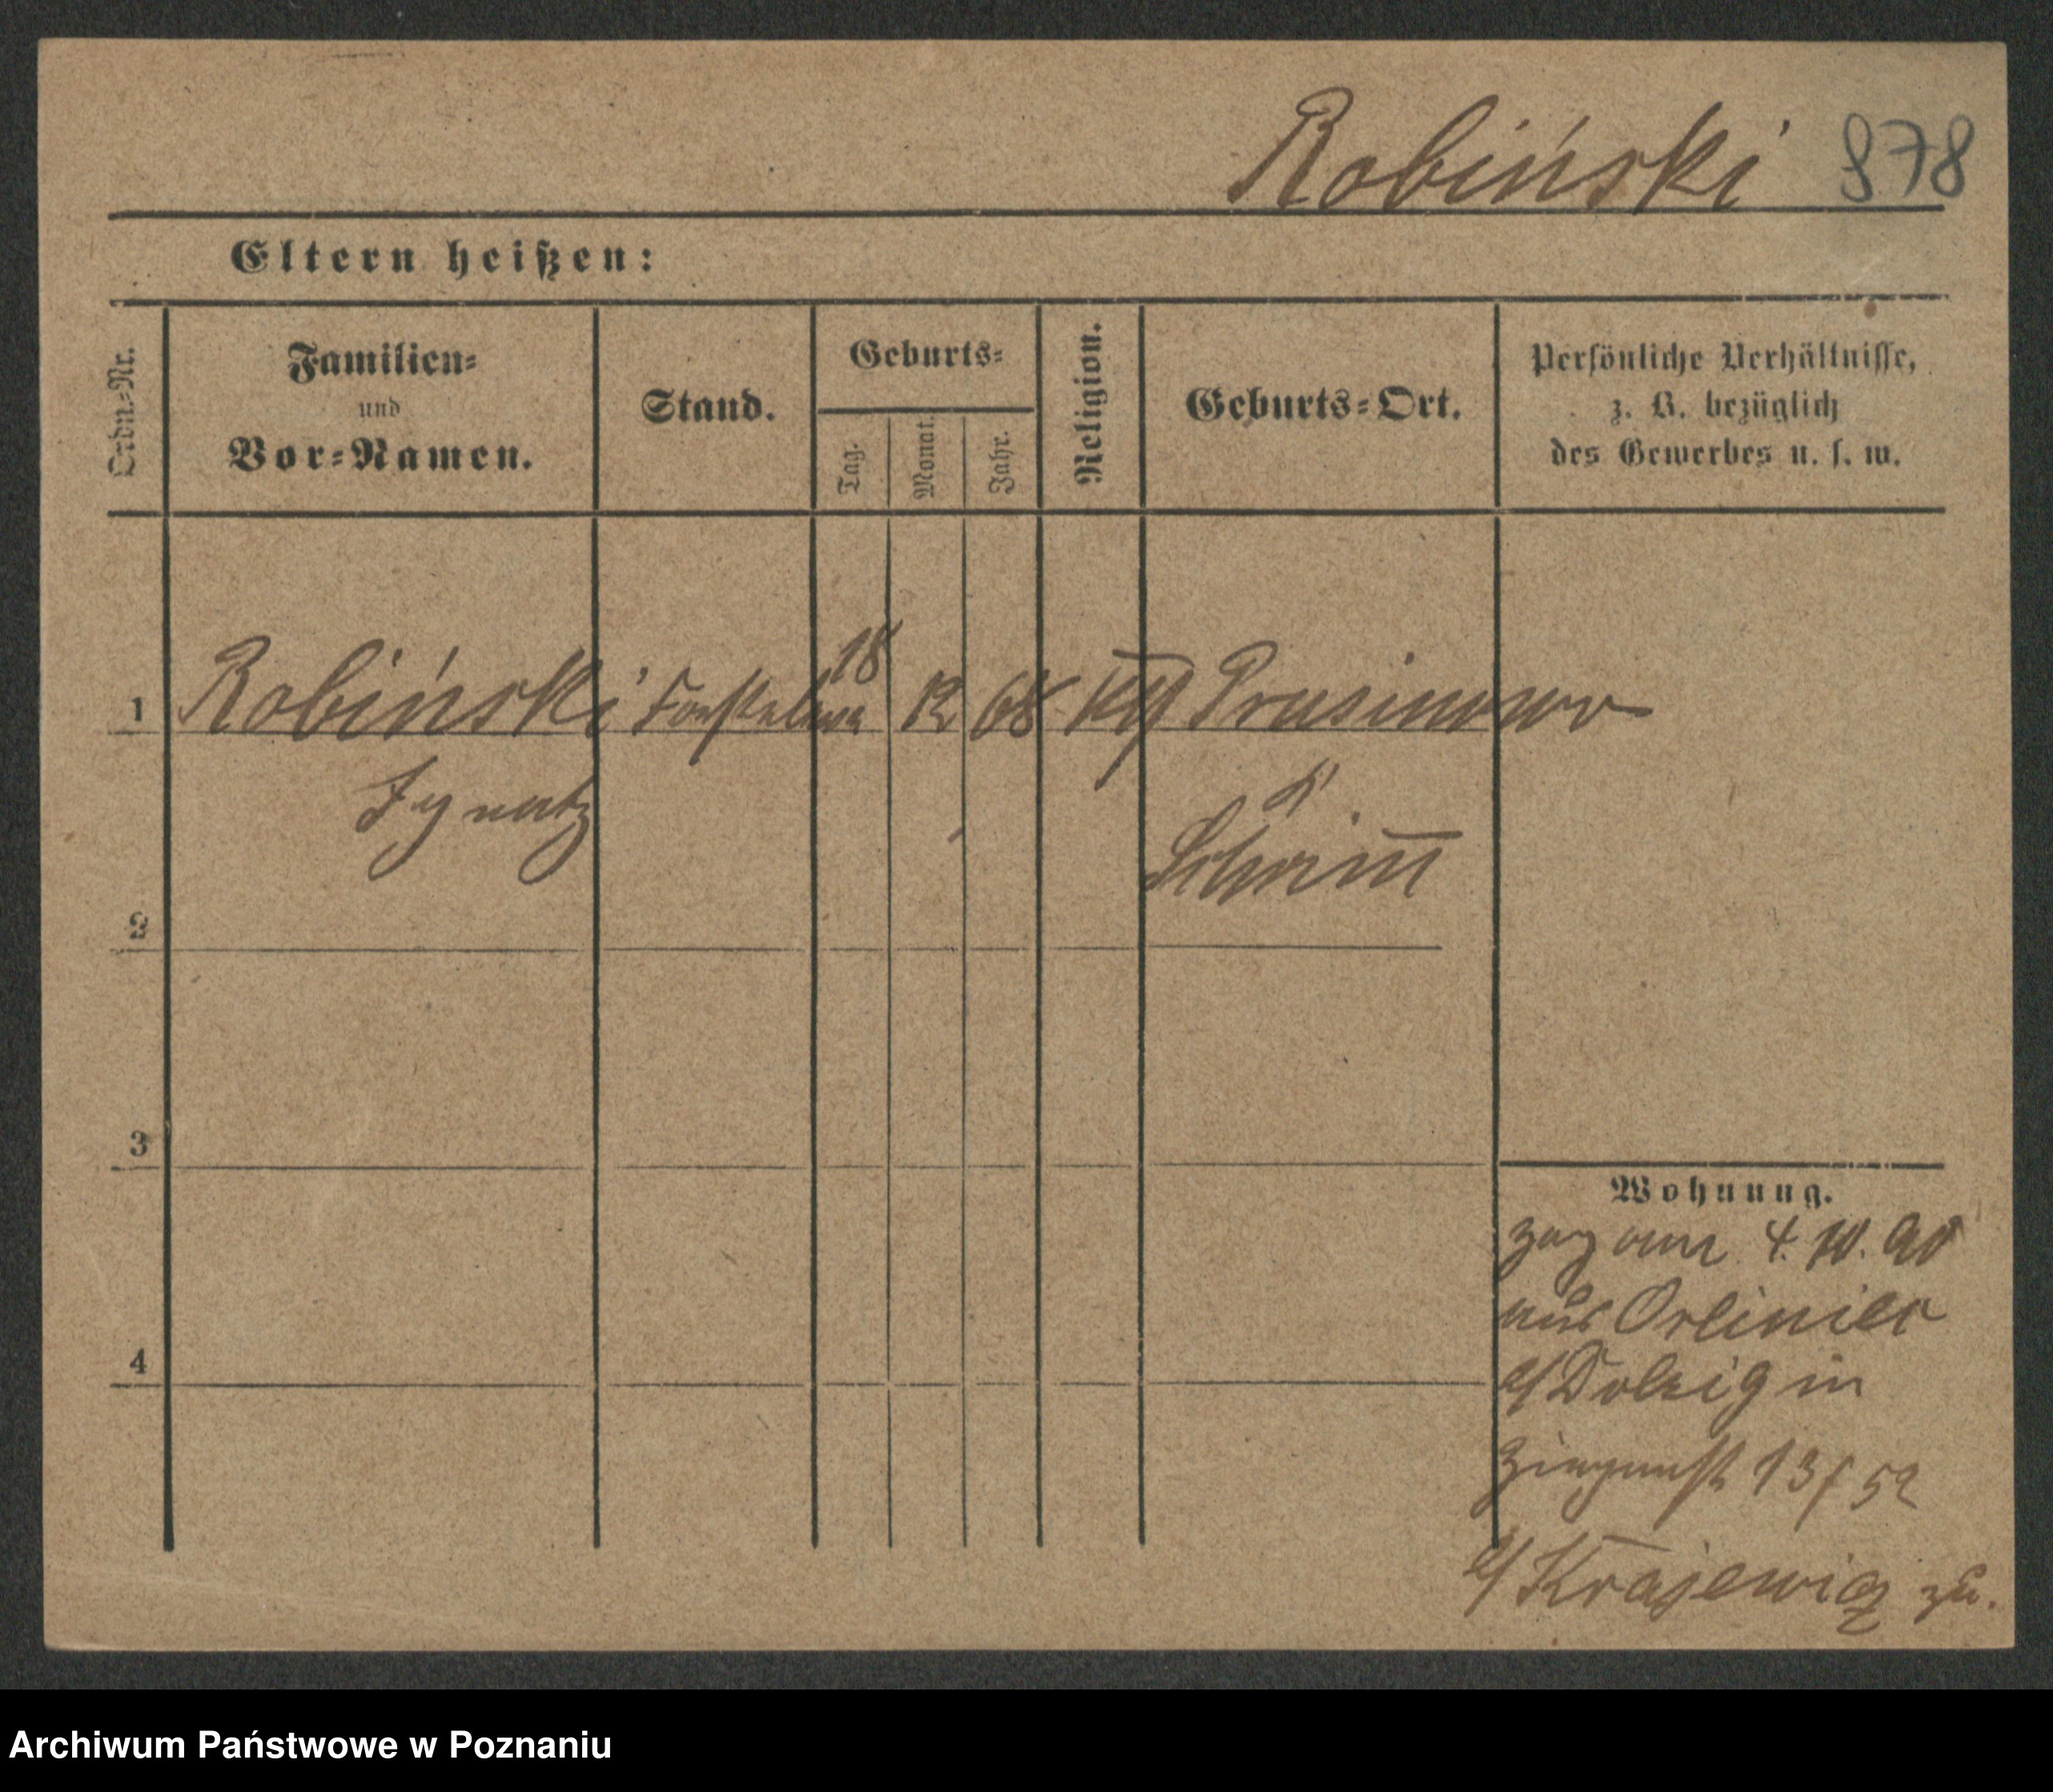 Robiński 878
Eltern heißen:
Ordn.-Nr.
Familien-
und
Vor-Namen.
Stand.
Geburts-
Tag.
Monat.
Jahr.
Religion.
Geburts-Ort.
Persönliche Verhältnisse,
z. B. bezüglich
des Gewerbes u. s. w.
18
1 Robiński Forsteleve 12 68 Prusimowo
Ignatz
Schrimm
2
3
4
Wohnung.
zog am 4. 10. 90
aus Orliniec
b/ Dolzig in
13/52
b/ Krajewicz zu.
Archiwum Państwowe w Poznaniu